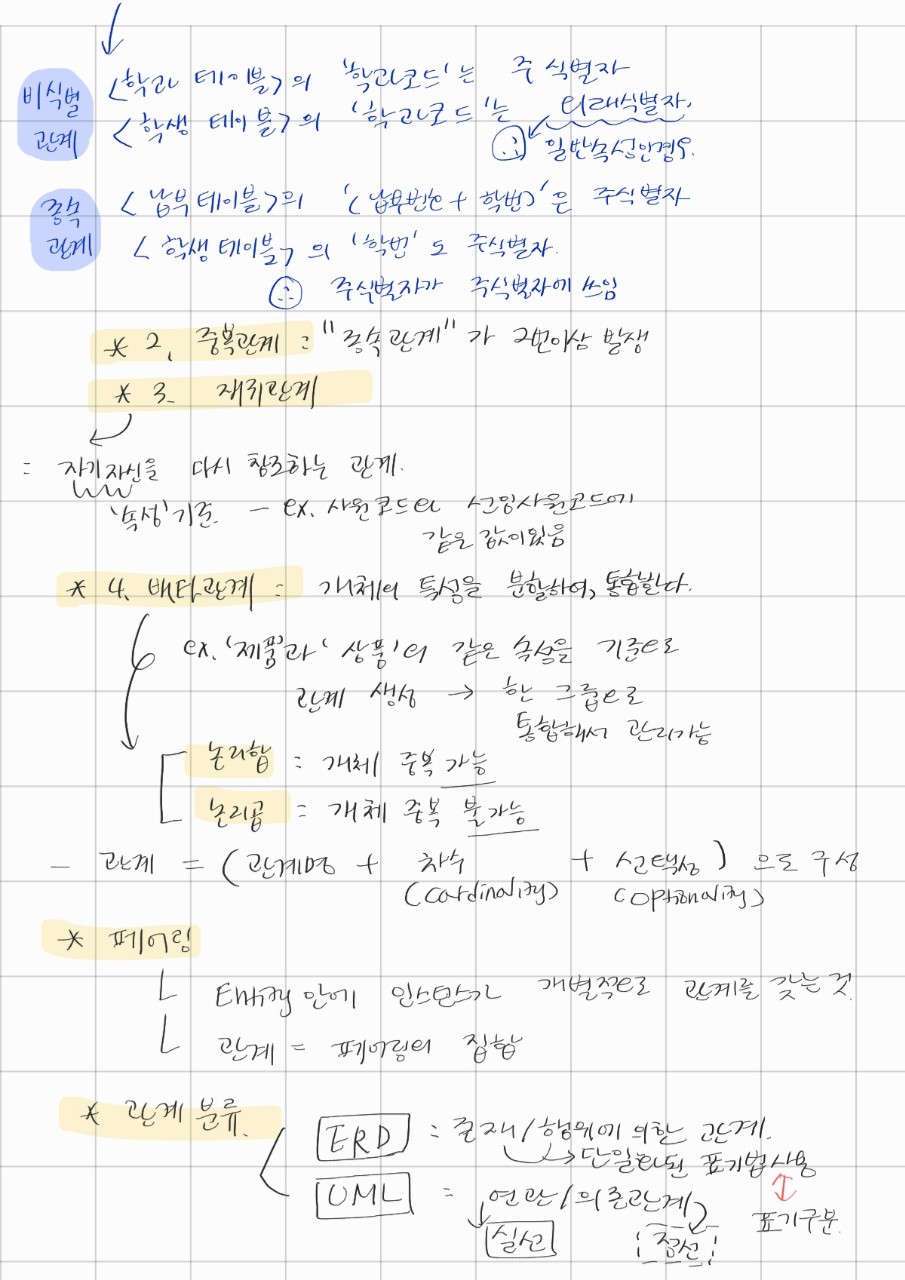 비식별 관계
<학과 테이블>의 '학과코드'는 주 식별자
<학생 테이블>의 '학과코드'는 외래식별자.
∵ 일반속성인경우.
종속 관계
<납부테이블>의 '(납부번호 + 학번)'은 주식별자
<학생테이블>의 '학번'도 주식별자.
∵ 주식별자가 주식별자에 쓰임
* 2. 중복관계 : "종속관계"가 2번이상 발생
* 3. 재귀관계
= 자기자신을 다시 참조하는 관계.
'속성'기준. - ex. 사원코드와 선임사원코드에
같은 값이있음
* 4. 배타관계 = 개체의 특성을 분할하여, 통합한다.
ex. '제품'과 '상품'의 같은 속성을 기준으로
관계 생성 → 한 그룹으로
통합해서 관리가능
논리합 = 개체 중복 가능
논리곱 = 개체 중복 불가능
- 관계 = (관계명 + 차수 + 선택성) 으로 구성
(Cardinality) (Optionality)
* 페어링
Entity 안에 인스턴스가 개별적으로 관계를 갖는 것.
관계 = 페어링의 집합
* 관계 분류.
ERD : 존재/행위에 의한 관계.
→ 단일화된 표기법사용
UML = 연관/의존관계
표기구분.
실선 점선